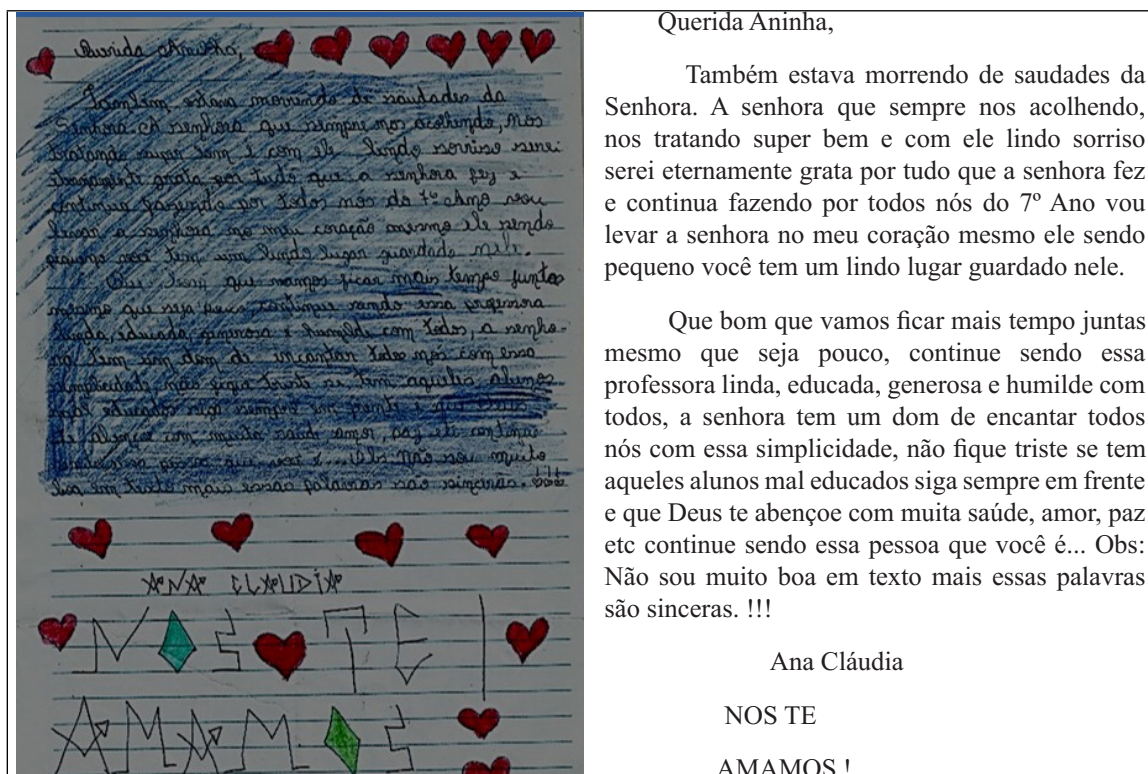 Querida Aninha,
Também estava morrendo de saudades da
Senhora. A senhora que sempre nos acolhendo, nos
tratando super bem e com ele lindo sorriso serei
eternamente grata por tudo que a senhora fez e
continua fazendo por todos nos do 7º Ano vou
levar a senhora no meu coração mesmo ele sendo
pequeno voce tem um lindo lugar guardado nele.
Que bom que vamos ficar mais tempo juntas
mesmo que seja pouco continue sendo essa professora
linda, educada, generosa e humilde com todos, a senho-
ra tem um dom de encantar todos nós com essa
simplicidade não fique triste se tem aqueles alunos
mal educados siga sempre em frente e que Deus
te abençoe com muita saúde amor, paz etc continue
sendo essa pessoa que voce é... Obs Não sou muito
boa em texto mais essas palavras são sinceras. !!!
ANA CLAUDIA
NOS TE
AMAMOS
Querida Aninha,
Também estava morrendo de saudades da
Senhora. A senhora que sempre nos acolhendo,
nos tratando super bem e com ele lindo sorriso
serei eternamente grata por tudo que a senhora fez
e continua fazendo por todos nós do 7º Ano vou
levar a senhora no meu coração mesmo ele sendo
pequeno você tem um lindo lugar guardado nele.
Que bom que vamos ficar mais tempo juntas
mesmo que seja pouco, continue sendo essa
professora linda, educada, generosa e humilde com
todos, a senhora tem um dom de encantar todos
nós com essa simplicidade, não fique triste se tem
aqueles alunos mal educados siga sempre em frente
e que Deus te abençoe com muita saúde, amor, paz
etc continue sendo essa pessoa que você é... Obs:
Não sou muito boa em texto mais essas palavras
são sinceras. !!!
Ana Cláudia
NOS TE
AMAMOS !